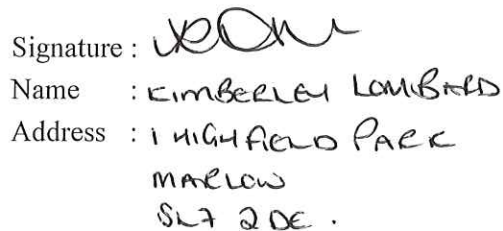 Signature :
Name : KIMBERLEY LOMBARD
Address : 1 HIGHFIELD PARK
MARLOW
SL7 2DE .